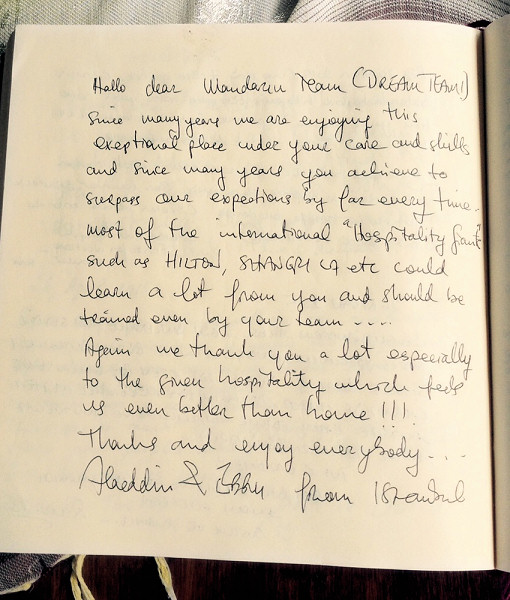 Hallo dear Mandarin Team (DREAMTEAM!)
Since many years we are enjoying this
exeptional place under your care and skills
and since many years you achieve to
surpass our expections by far every time.
most of the international "Hospitality Giants"
such as HILTON, SHANGRI LA etc could
learn a lot from you and should be
trained even by your team ....
Again we thank you a lot especially
to the given hospitality which feels
us even better than home !!!
Thanks and enjoy everybody...
Alaeddin & from Istanbul